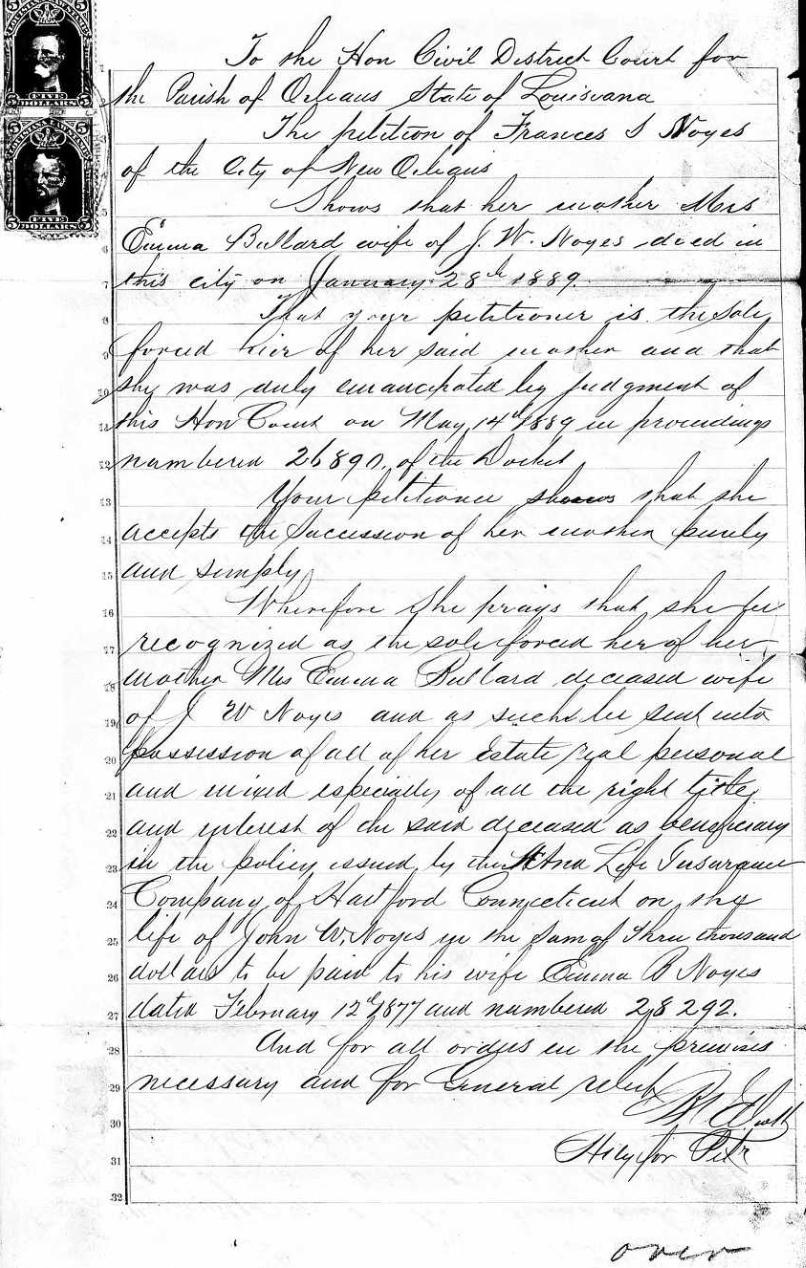 To the Hon Civil District Court for
the Parish of Orleans State of Louisiana
The petition of Frances S Noyes
of the City of New Orleans
Shows that her mother Mrs
Emma Bullard wife of J. W. Noyes died in
this city on January 28th 1889.
That your petitioner is the sole
forced heir of her said mother and that
she was duly emancipated by judgment of
this Hon Court on May 14th 1889 in proceedings
numbered of the Docket
Your petitioner shows that she
accepts the Succession of her mother purely
and simply
Wherefore She prays that she be
recognized as the sole forced heir of her
mother Mrs Emma Bullard deceased wife
of J W Noyes and as such be sent into
possession of all of her Estate real personal
and mixed especially of all the right title
and interest of the said deceased as beneficiary
in the policy issued by the Ætna Life Insurance
Company of Hartford Connecticut on the
life of John W. Noyes in the sum of three thousand
dollars to be paid to his wife Emma B Noyes
dated February 12th 1877 and numbered 28292.
And for all orders in the premises
necessary and for General relief
Atty for Petr
over
FIVE
DOLLARS
FIVE
DOLLARS